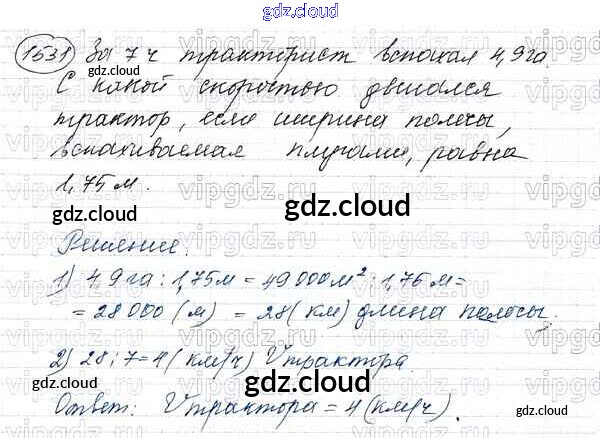 gdz.cloud
1531 За 7 ч тракторист вспахал 4,9 га.
gdz.cloud
С какой скоростью двигался
трактор, если ширина полосы,
вспахиваемая плугами, равна
1,75 м.
gdz.cloud
gdz.cloud
Решение:
1) 4,9 га : 1,75 м = 49 000 м² : 1,75 м =
= 28 000 (м) = 28 (км) длина полосы.
2) 28 : 7 = 4 (км/ч) V трактора.
gdz.cloud
gdz.cloud
Ответ: V трактора = 4 (км/ч).
gdz.cloud
vipgdz.ru